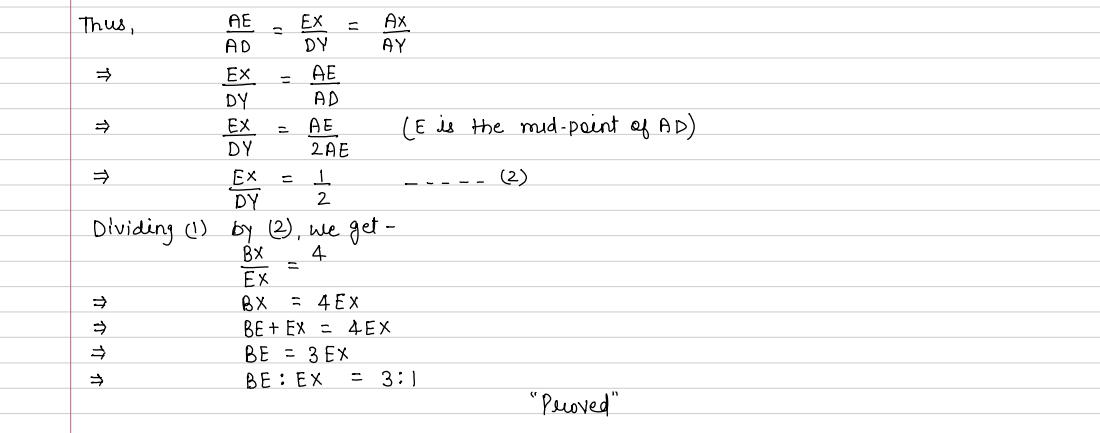 Thus, AE/AD = EX/DY = AX/AY
⇒ EX/DY = AE/AD
⇒ EX/DY = AE/2AE (E is the mid-point of AD)
⇒ EX/DY = 1/2 ----- (2)
Dividing (1) by (2), we get -
BX/EX = 4
⇒ BX = 4EX
⇒ BE + EX = 4EX
⇒ BE = 3EX
⇒ BE : EX = 3:1
"Proved"